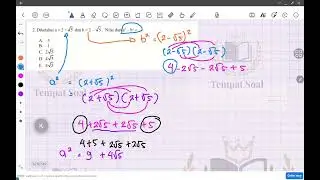 2. Diketahui a = 2 + √5 dan b = 2 - √5. Nilai dari a² - b² =
A.
B.
C. 2√5
D. 4√5
E. 8√5
b² = (2-√5)²
(2-√5)(2-√5)
4 -2√5 -2√5 + 5
a² = (2+√5)²
(2+√5)(2+√5)
4 + 2√5 + 2√5 + 5
4+5 + 2√5 + 2√5
a² = 9 + 4√5
Tempat Soal
Tempat Soal